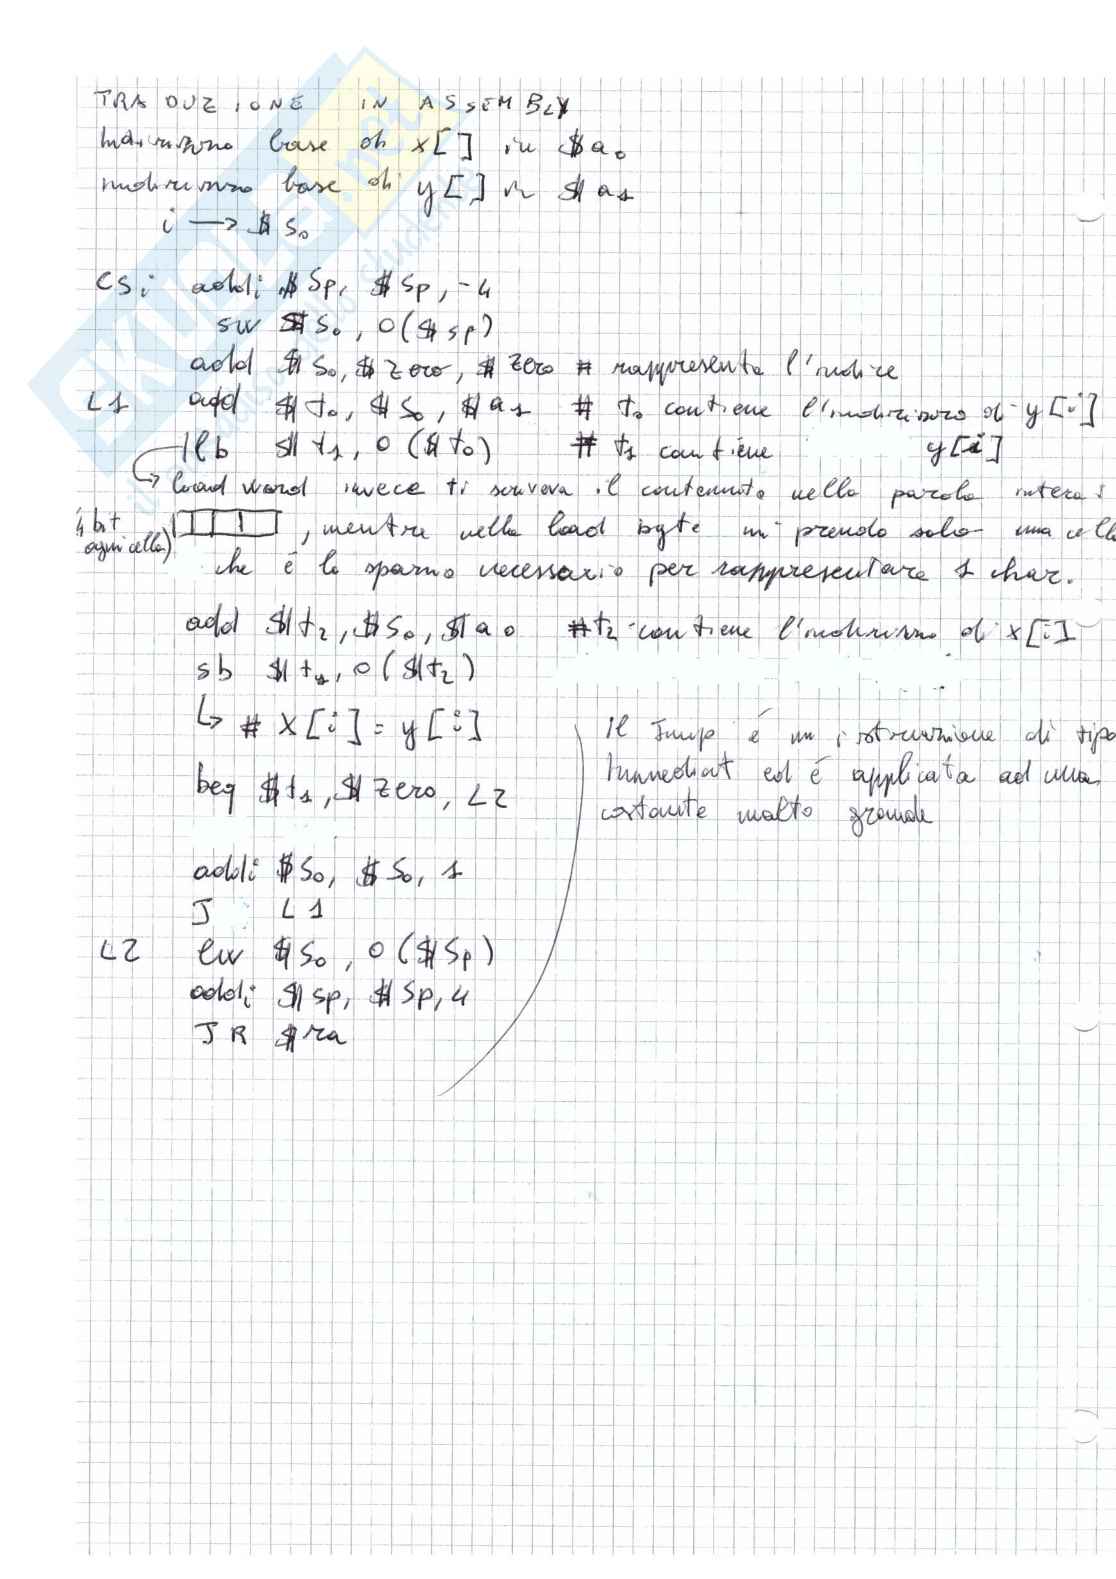 TRADUZIONE IN ASSEMBLY
Indirizzo base di x[] in $a0
indirizzo base di y[] in $a1
i → $s0
CSi addi $sp, $sp, -4
sw $s0, 0($sp)
add $s0, $zero, $zero # rappresenta l'indice
L1 add $t0, $s0, $a1 # t0 contiene l'indirizzo di y[i]
lb $t1, 0($t0) # t1 contiene y[i]
↳ load word invece ti scriveva il contenuto nella parola intera
bit ogni cella) , mentre nella load byte mi prendo solo una cella
che è lo spazio necessario per rappresentare 1 char.
add $t2, $s0, $a0 # t2 contiene l'indirizzo di x[i]
sb $t1, 0($t2)
↳ # X[i] = y[i]
beq $t1, $zero, L2
addi $s0, $s0, 1
J L1
L2 lw $s0, 0($sp)
addi $sp, $sp, 4
JR $ra
Il Jump è un istruzione di tipo
Immediat ed è applicata ad una
costante molto grande